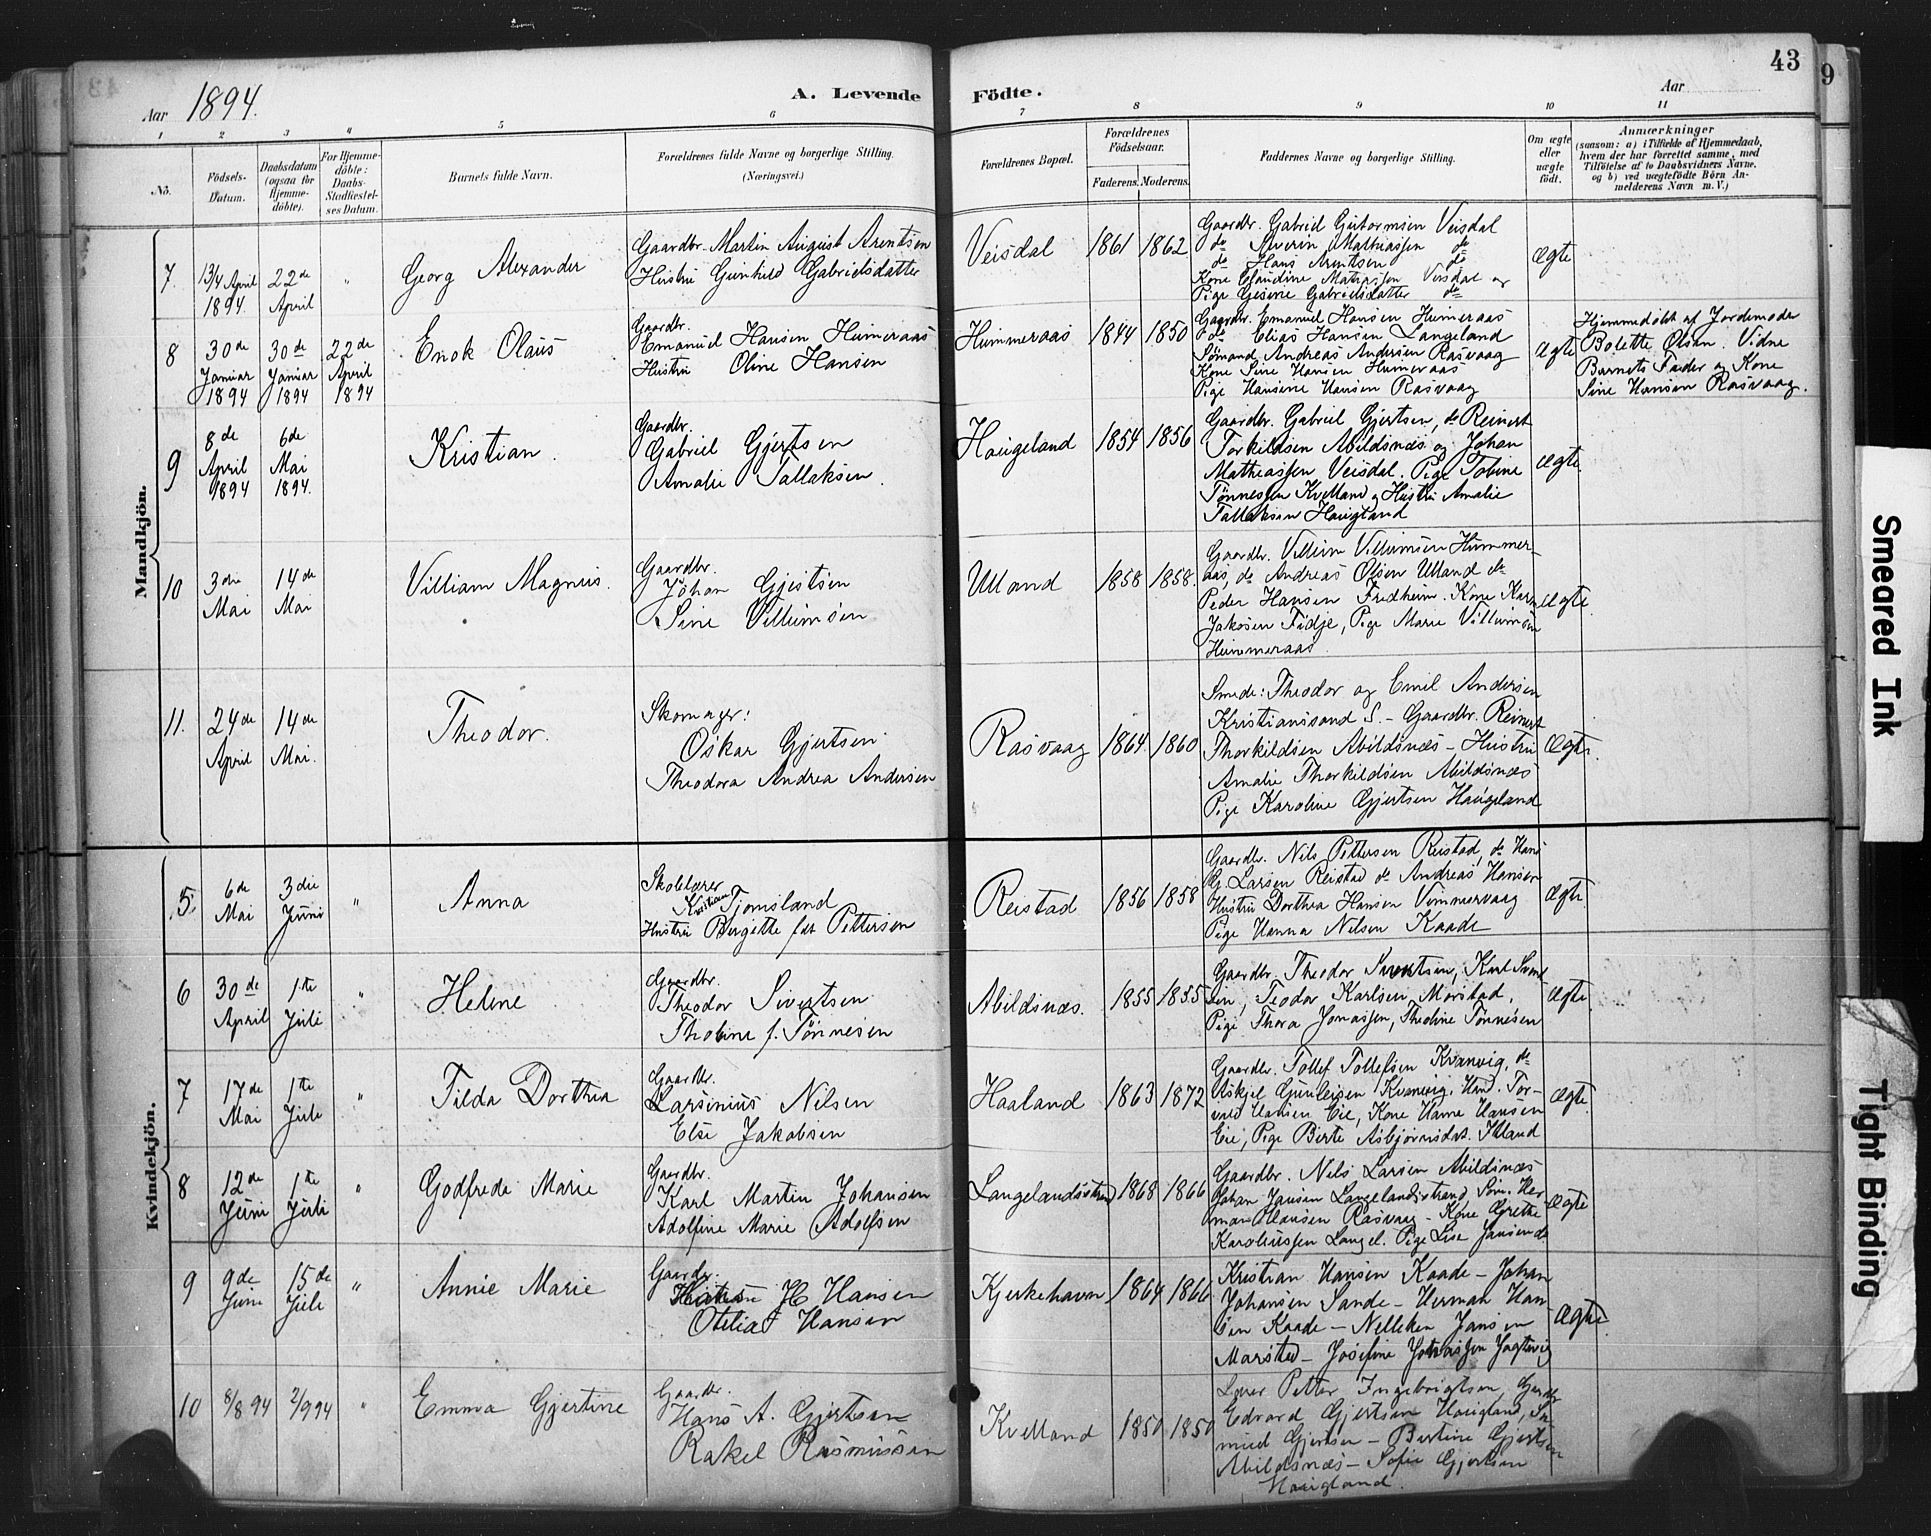 43
9
Aar 1894.
A. Levende Födte.
Aar
1 2 3 4 5 6 7 8 9 10 11
No.
Födsels-
Datum.
Daabsdatum
(ogsaa for
Hjemme-
döbte).
For Hjemme-
döbte:
Daabs-
Stadfæstel-
ses Datum.
Barnets fulde Navn.
Forældrenes fulde Navne og borgerlige Stilling.
(Næringsvei.)
Forældrenes Bopæl.
Forældrenes
Födselsaar.
Faderens. Moderens.
Faddernes Navne og borgerlige Stilling.
Om ægte
eller
uægte
födt.
Anmærkninger
(saasom: a) i Tilfælde af Hjemmedaab,
hvem der har forrettet samme, med
Tilföielse af to Daabsvidners Navne.
og b) ved uægtefödte Börn An-
melderens Navn m. V.)
Mandkjön.
7.
13/4 April
1894
22de
April
"
Georg Alexander
Gaardbr. Martin August Arentsen
Hustru Gunhild Gabrielsdatter
Veisdal
1861 1862
Gaardbr. Gabriel Guttormsen Veisdal
do Severin Mathiassen do
do Hans Arentsen do
Kone Claudine Mathiassen Veisdal og
Pige Gesine Gabrielsdatter do
Ægte
8
30de
Januar
1894
30de
Januar
1894
22de
April
1894
Enok Olaus
Gaardbr.
Emanuel Hansen Hummeraas
Hustru Oline Hansen
Hummeraas
1844 1850
Gaardbr. Emanuel Hansen Humeraas
do Elias Hansen Langeland
Sømand Andreas Andersen Rasvaag
Kone Sine Hansen Humeraas
Pige Hansine Hansen Rasvaag
Ægte
Hjemmedøbt af Jordemoder
Bolette Olsen. Vidne
Barnets Fader og Kone
Sine Hansen Rasvaag.
9
8de
April
1894
6de
Mai
1894.
Kristian.
Gaardbr.
Gabriel Gjertsen
Amalie Tallaksen.
Haugeland
1854 1856
Gaardbr. Gabriel Gjertsen, do Reinert
Torkildsen Abildsnæs og Johan
Mathiassen Veisdal. Pige Tobine
Tønnesen Kvelland og Hustru Amalie
Tallaksen Haugland
Ægte
10
3die
Mai
14de
Mai
Villiam Magnus.
Gaardbr.
Johan Gjertsen
Sine Villumsen
Ulland
1858 1858.
Gaardbr. Villum Villumsen Hummer-
aas, do Andreas Olsen Ulland do
Peder Hansen Fredheim. Kone Karen
Jakobsen Fidje, Pige Marie Villumsen
Hummeraas
Ægte
11.
24de
April
14de
Mai.
Theodor.
Skomager:
Oskar Gjertsen
Theodora Andrea Andersen
Rasvaag
1864 1860
Smede: Theodor og Emil Andersen
Kristianssand S. - Gaardbr. Reinert
Thorkildsen Abildsnæs - Hustru
Amalie Thorkildsen Abildsnæs
Pige Karoline Gjertsen Haugeland
Ægte.
Kvindekjön.
5.
6de
Mai
3die
Juni
"
Anna
Skolelærer
Kristian Tjomsland
Hustru Birgitte født Pettersen
Reistad
1856 1858
Gaardbr. Nils Pettersen Reistad, do Hans
G. Larsen Reistad do Andreas Hansen
Hustru Dorthea Hansen Vimmervaag
Pige Hanna Nelsen Kaade
Ægte.
6
30de
April
1ste
Juli
"
Helene
Gaardbr.
Theodor Sivertsen
Tholine f. Tønnesen
Abildsnæs.
1855 1855
Gaardbr. Theodor Sivertsen, Karl
Teodor Karlsen Marstad,
Pige Thora Jonassen, Tholine Tønnesen
Ægte
7
17de
Mai
1ste
Juli
"
Tilda Dorthea
Gaardbr.
Larsinius Nilsen
Else Jakobsen
Haaland
1863 1872
Gaardbr. Tollef Tollefsen Kvanvig, do
Askjel Gunleisen Kvanvig, Tor-
vald Hansen Eie, Kone Hanne Hansen
Eie, Pige Birte Asbjørnsdat. Ulland
Ægte
8
12de
Juni
1ste
Juli
"
Godfrede Marie
Gaardbr.
Karl Martin Johansen
Adolfine Marie Adolfsen
Langelandsstrand
1868 1866
Gaardbr. Nils Larsen Abildsnæs
Johan Jansen Langelandsstrand, Søm. Her-
man Hansen Rasvaag - Kone Grethe
Karoliussen Langel. Pige Lise Jansen do
Ægte
9
9de
Juni
15de
Juli
"
Annie Marie
Gaardbr.
H. Hansen
Otelia Hansen
Kjerkehavn
1864 1866
Kristian Hansen Kaade - Johan
Johansen Sande - Herman Han-
sen Kaade - Nelleken Jansen
Marstad - Josefine Johnsen Jagtevig
Ægte.
10
8/8 94
2/9 94
"
Emma Gjertine
Gaardbr.
Hans A. Gjertsen
Rakel Rasmussen
Kvelland
1850 1850
Lærer Petter Ingebrigtsen, Gaardbr
Edvard Gjertsen Haugland, Sa-
muel Gjertsen - Bertine Gjertsen
Abildsnæs - Sofie Gjertsen
Haugland.
Smeared Ink
Tight Binding